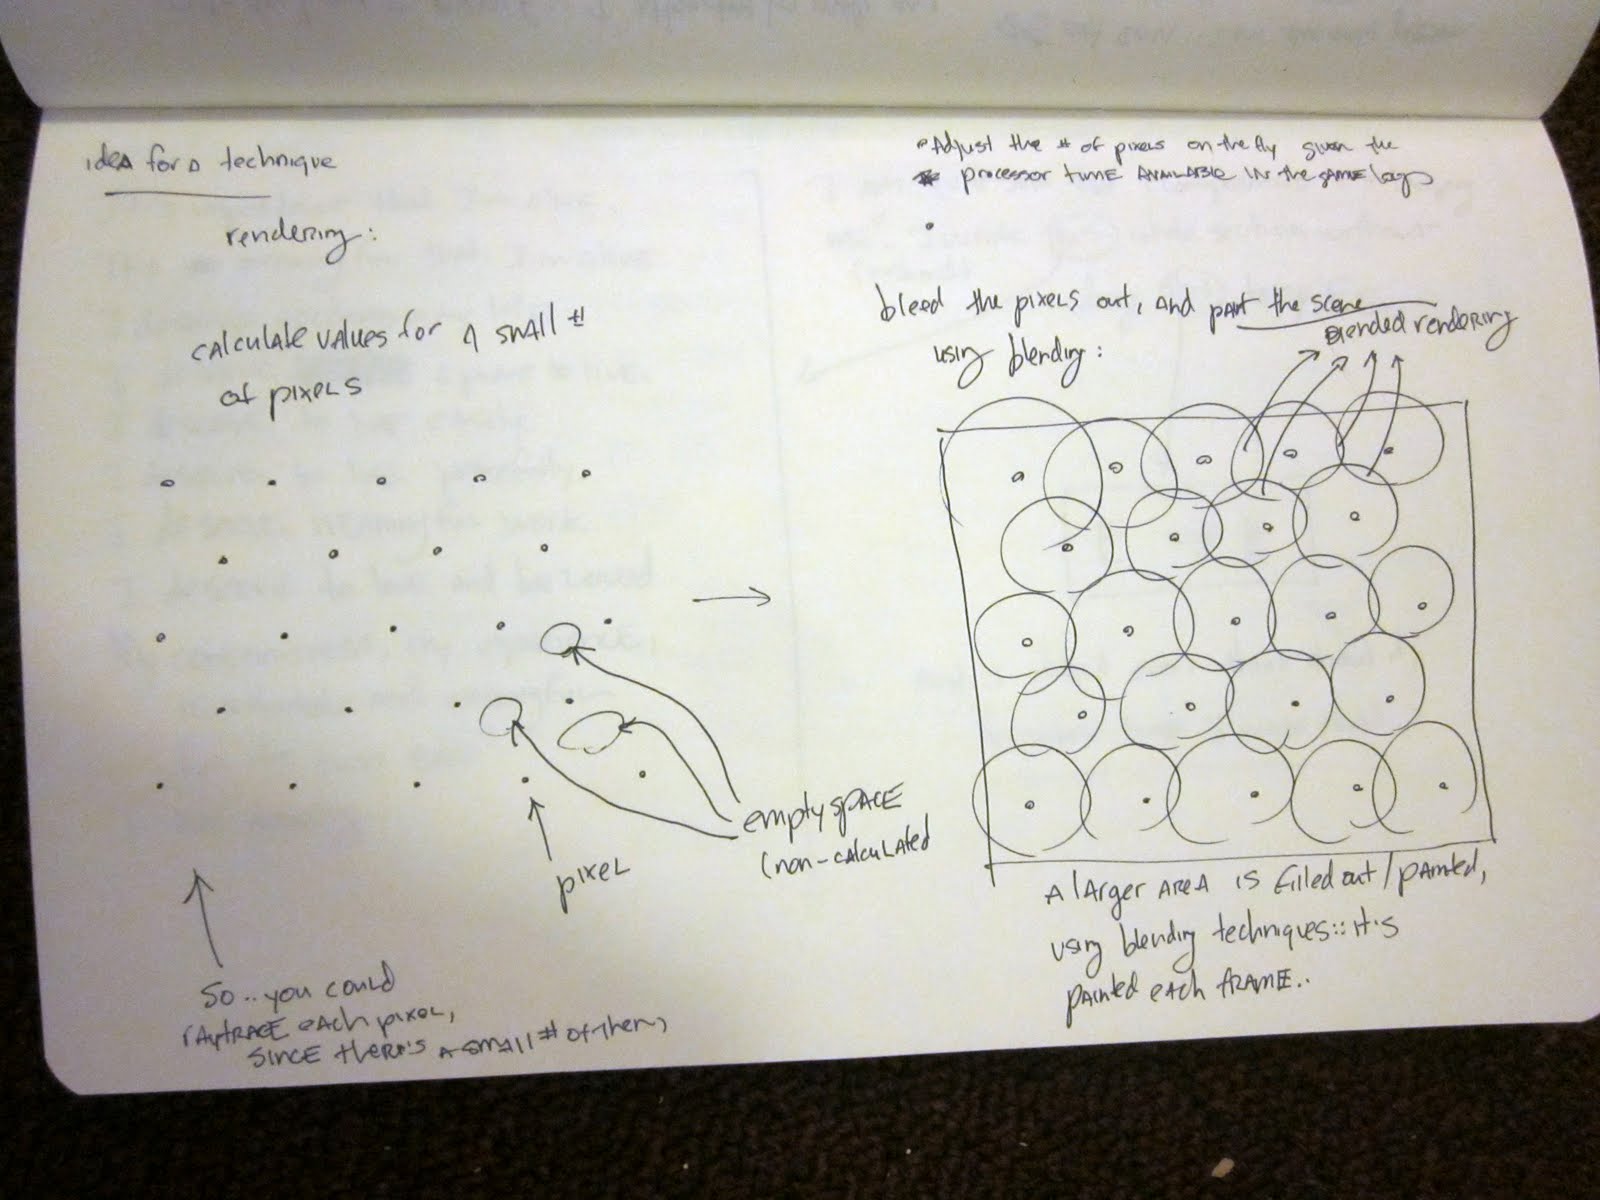 idea for a technique
rendering:
calculate values for a small #
of pixels
empty space
(non-calculated
pixel
So.. you could
raytrace each pixel,
since there's a small # of them)
• Adjust the # of pixels on the fly given the
processor time available in the same
•
bleed the pixels out, and paint the scene
using blending:
blended rendering
A larger area is filled out/painted,
using blending techniques:: it's
painted each frame..